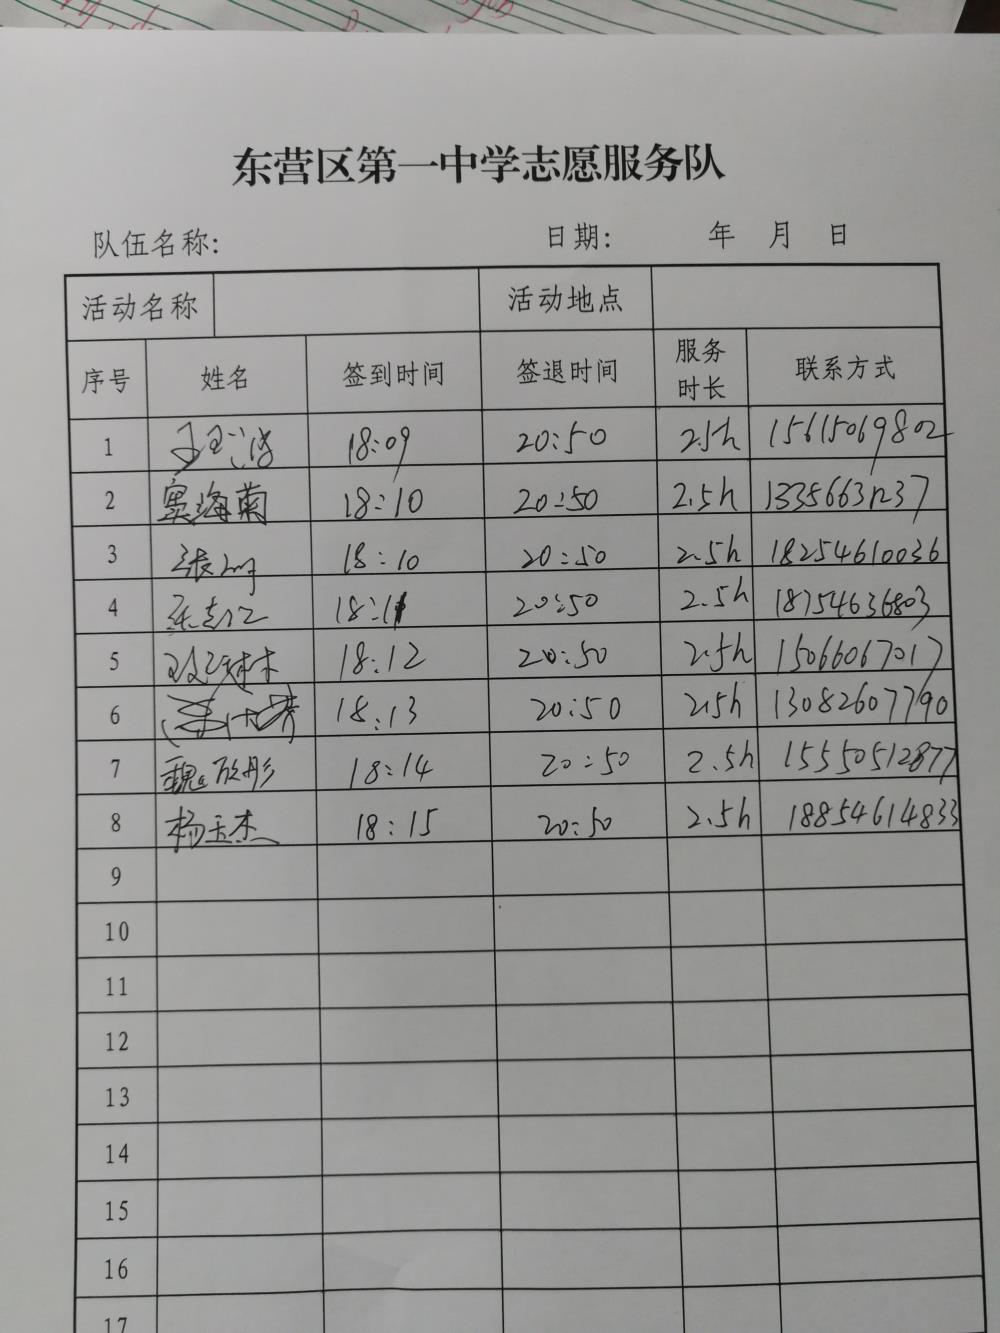 东营区第一中学志愿服务队
队伍名称: 日期: 年 月 日
活动名称 活动地点
序号 姓名 签到时间 签退时间 服务时长 联系方式
1 18:09 20:50 2.5h 15615069802
2 窦海菊 18:10 20:50 2.5h 13356631237
3 张 18:10 20:50 2.5h 18254610036
4 18:11 20:50 2.5h 18754636803
5 18:12 20:50 2.5h 15066067017
6 18:13 20:50 2.5h 13082607790
7 魏欣彤 18:14 20:50 2.5h 15550512877
8 杨玉杰 18:15 20:50 2.5h 18854614833
9
10
11
12
13
14
15
16
17